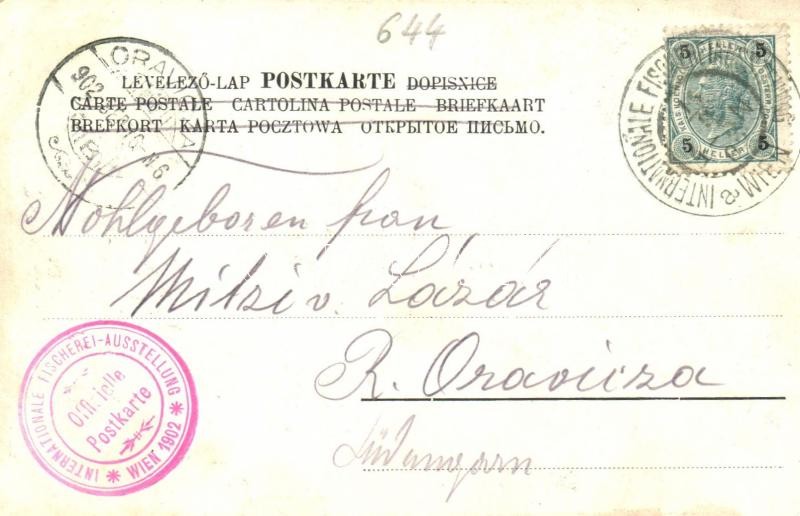 644
LEVELEZŐ-LAP POSTKARTE DOPISNICE
CARTE POSTALE CARTOLINA POSTALE BRIEFKAART
BREFKORT KARTA POCZTOWA ОТКРЫТОЕ ПИСЬМО.
5 5
5 HELLER 5
INTERNATIONALE
Wohlgeboren frau
Mitzi v. Lázár
R. Oravicza
Südungarn
INTERNATIONALE FISCHEREI-AUSSTELLUNG
WIEN 1902
Offizielle
Postkarte